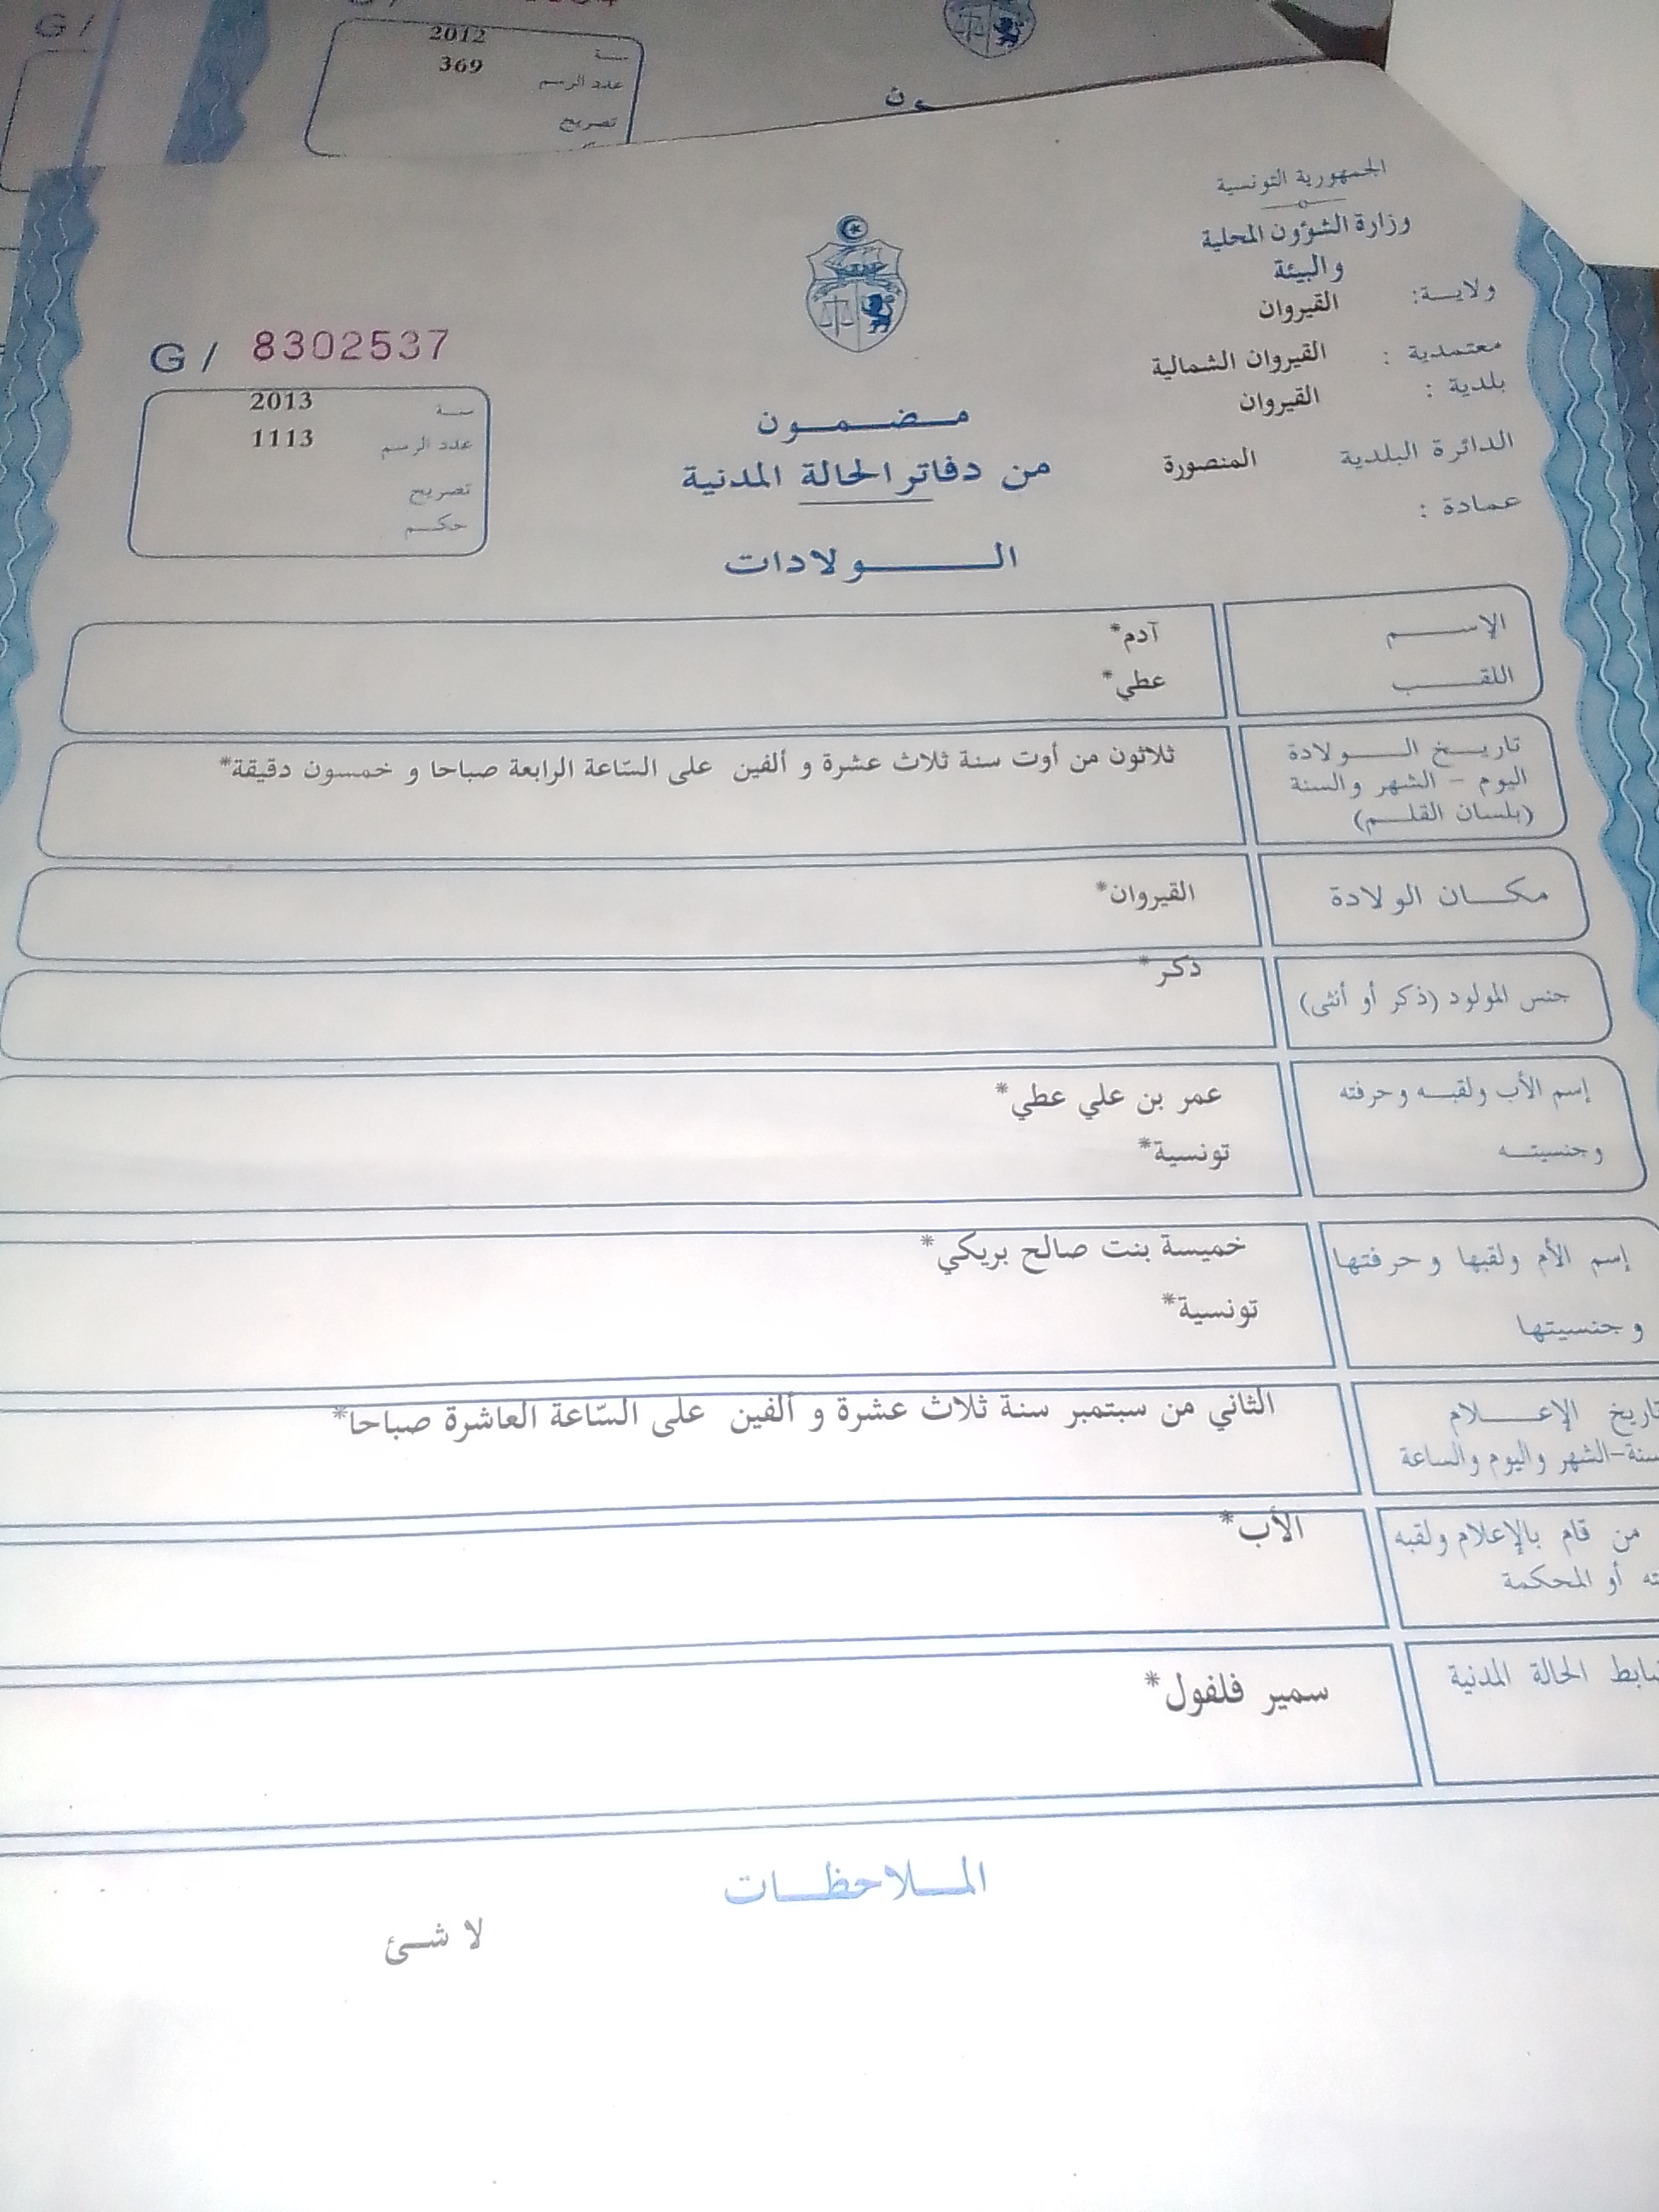 G /
2012
سنة
369
عدد الرسم
تصريح
الجمهورية التونسية
وزارة الشؤون المحلية
والبيئة
ولايـــة: القيروان
معتمدية : القيروان الشمالية
بلدية : القيروان
الدائرة البلدية المنصورة
عمادة :
G / 8302537
سنة 2013
عدد الرسم 1113
تصريح
حكم
مضمون
من دفاتر الحالة المدنية
الـولادات
الإسم آدم*
اللقب عطي*
تاريخ الولادة
اليوم - الشهر والسنة
(بلسان القلم)
ثلاثون من أوت سنة ثلاث عشرة و ألفين على السّاعة الرابعة صباحا و خمسون دقيقة*
مكان الولادة القيروان*
جنس المولود (ذكر أو أنثى) ذكر*
إسم الأب ولقبه وحرفته عمر بن علي عطي*
وجنسيته تونسية*
إسم الأم ولقبها وحرفتها خميسة بنت صالح بريكي*
وجنسيتها تونسية*
تاريخ الإعلام الثاني من سبتمبر سنة ثلاث عشرة و ألفين على السّاعة العاشرة صباحا*
سنة-الشهر واليوم والساعة
من قام بالإعلام ولقبه الأب*
أو المحكمة
الحالة المدنية سمير فلفول*
الملاحظات
لا شئ